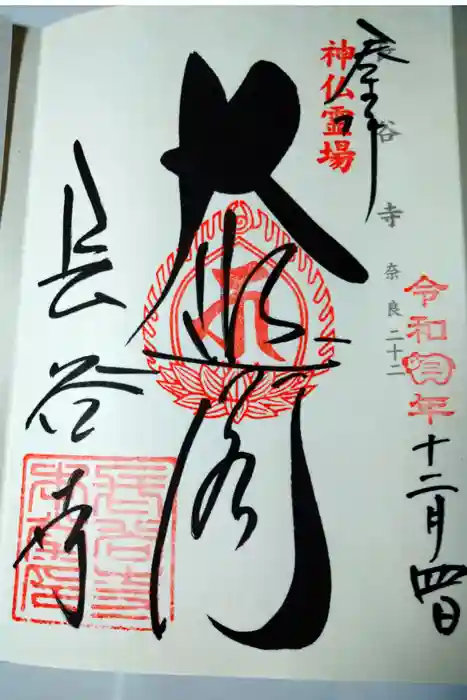 奉拝
神仏霊場
長谷寺 奈良二十二
令和 年十二月四日
大悲閣
長谷寺